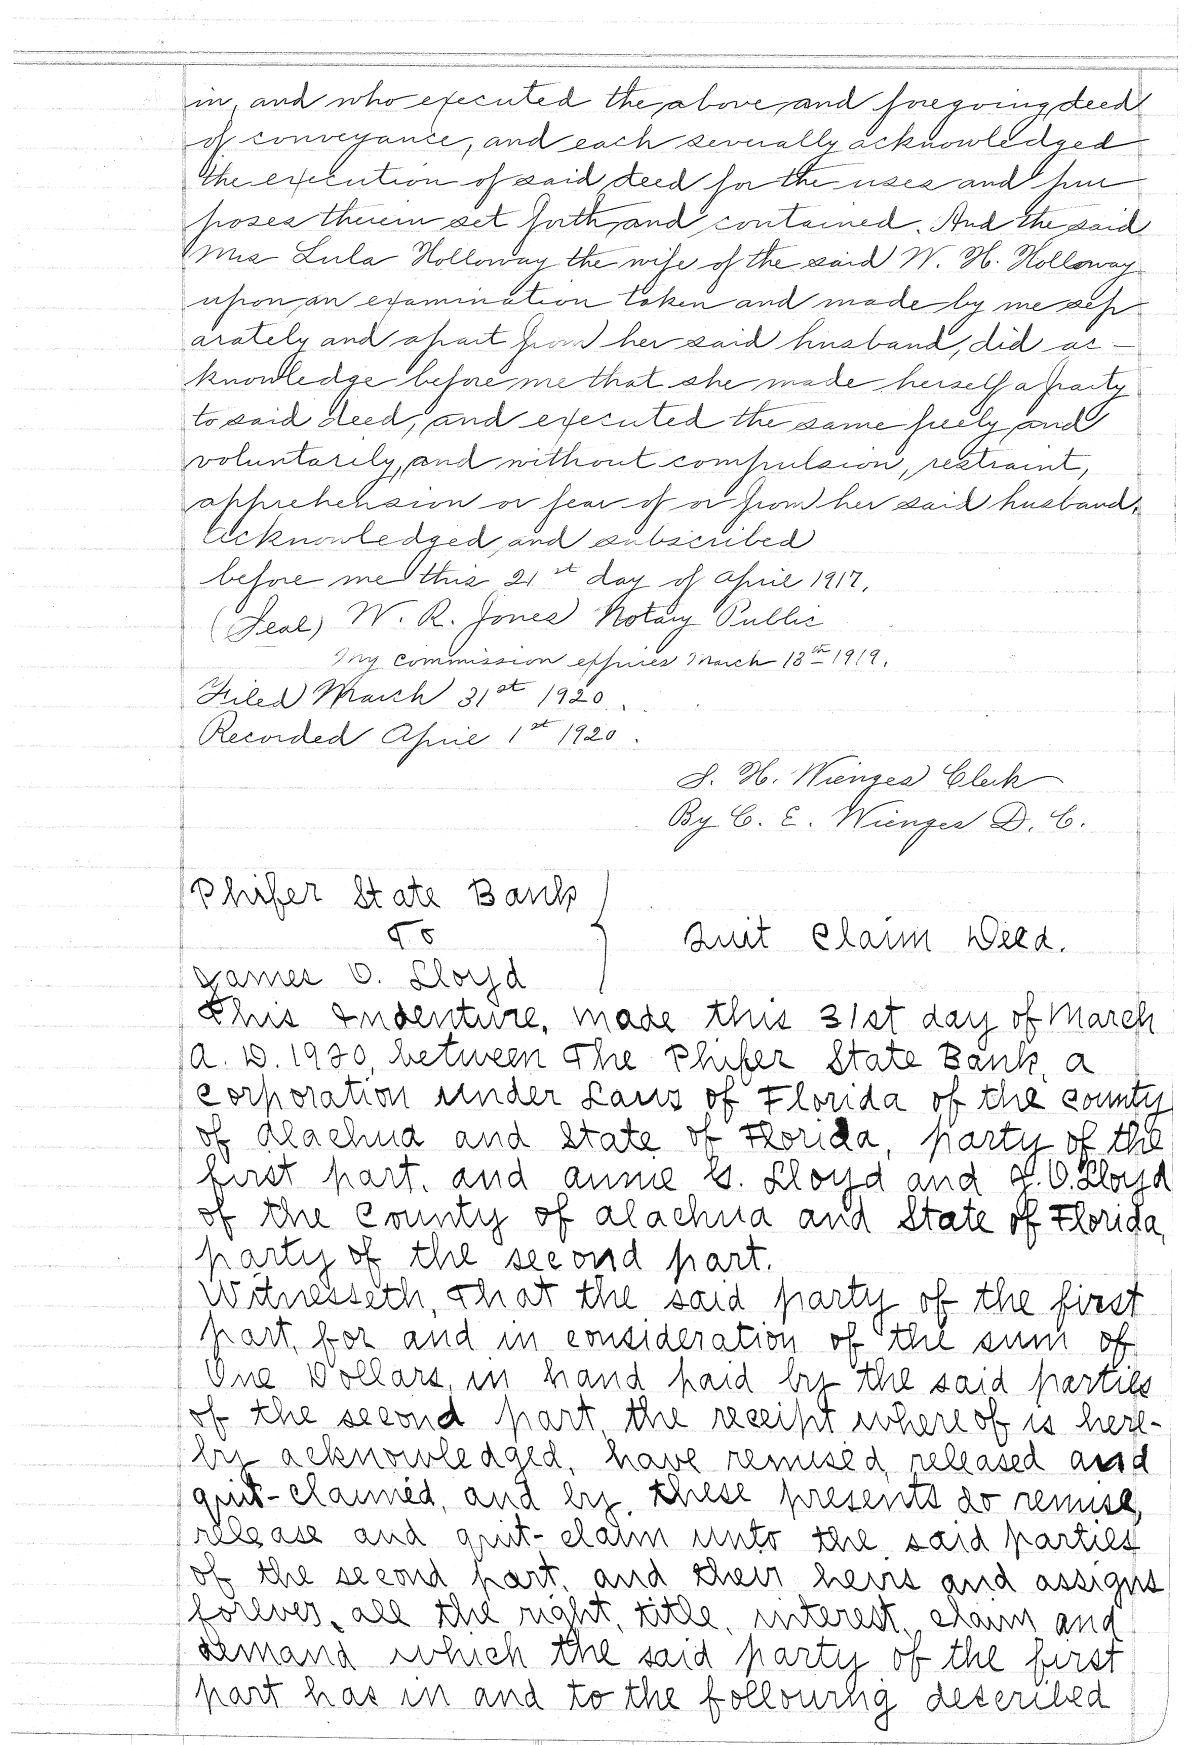 in, and who executed the above and foregoing deed
of conveyance, and each severally acknowledged
the execution of said deed for the uses and pur
poses therein set forth and contained. And the said
Mrs Lula Holloway the wife of the said W. H. Holloway
upon an examination taken and made by me sep
arately and apart from her said husband, did ac-
knowledge before me that she made herself a party
to said deed, and executed the same freely and
voluntarily, and without compulsion, restraint,
apprehension or fear of or from her said husband.
Acknowledged and subscribed
before me this 21st day of April 1917.
(Seal) W. R. Jones Notary Public
My commission expires March 13th 1919.
Filed March 31st 1920.
Recorded April 1st 1920.
S. H. Wienges Clerk
By C. E. Wienges D. C.
Phifer State Bank
To
Quit Claim Deed.
James V. Lloyd
This Indenture, made this 31st day of March
A. D. 1920, between The Phifer State Bank, a
corporation under Laws of Florida of the county
of Alachua and State of Florida, party of the
first part, and Annie G. Lloyd and J. V. Lloyd
of the County of Alachua and State of Florida,
party of the second part.
Witnesseth, That the said party of the first
part, for and in consideration of the sum of
One Dollars, in hand paid by the said parties
of the second part, the receipt whereof is here-
by acknowledged, have remised, released and
quit-claimed, and by these presents do remise,
release and quit-claim unto the said parties
of the second part, and their heirs and assigns
forever, all the right, title, interest, claim and
demand which the said party of the first
part has in and to the following described